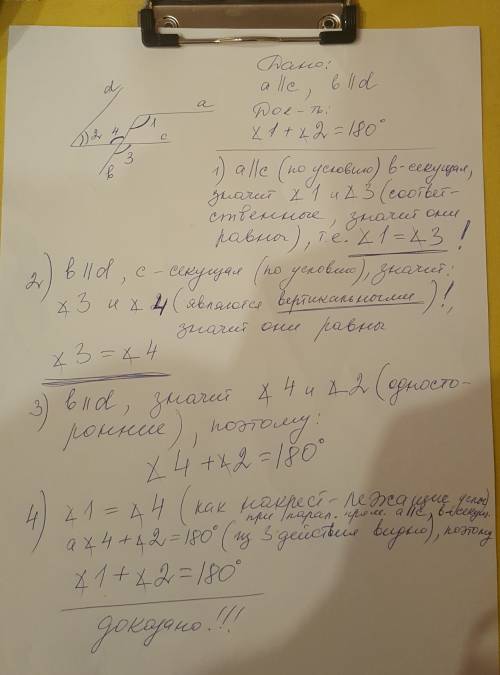 d
a
1
2
4
c
3
b
Дано:
a||c, b||d
Док-ть:
∡1+∡2=180°
1) a||c (по условию) b-секущая,
значит ∡1 и ∡3 (соответ-
ственные, значит они
равны), т.е. ∡1=∡3!
2) b||d, c-секущая (по условию), значит:
∡3 и ∡4 (являются вертикальными)!,
значит они равны
∡3=∡4
3) b||d, значит ∡4 и ∡2 (односто-
ронние), поэтому:
∡4+∡2=180°
4) ∡1=∡4 (как накрест-лежащие углы)
при парал. прям. a||c, b-секущ.
а ∡4+∡2=180° (из 3 действия видно), поэтому
∡1+∡2=180°
доказано!!!